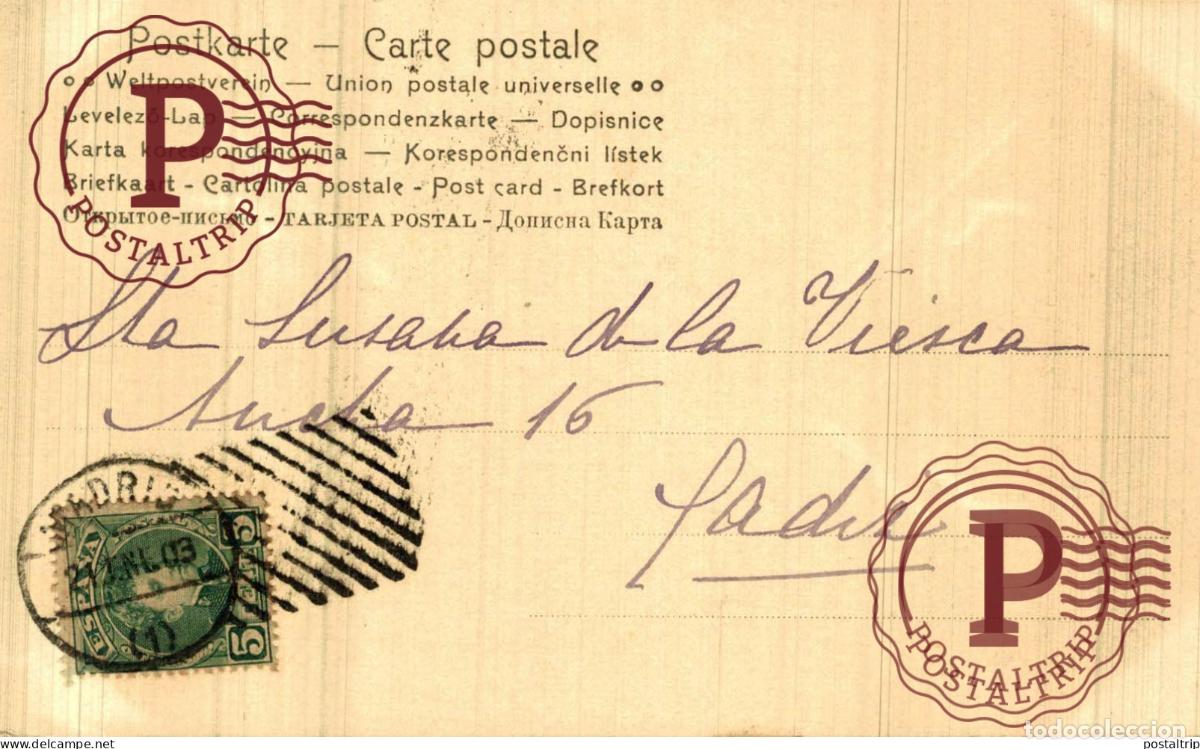 Postkarte – Carte postale
Weltpostverein – Union postale universelle
Levelező-Lap – Correspondenzkarte – Dopisnice
Karta korespondencyjna – Korespondenčni lístek
Briefkaart - Cartolina postale - Post card - Brefkort
Открытое-письмо - TARJETA POSTAL - Дописна Карта
P
POSTALTRIP
Sta Susana de la Viesca
Ancha 16
Cadiz
MADRID
ENE.03
(1)
ESPAÑA
5
5
P
POSTALTRIP
POSTALTRIP
todocoleccion
Delcampe.net
postaltrip